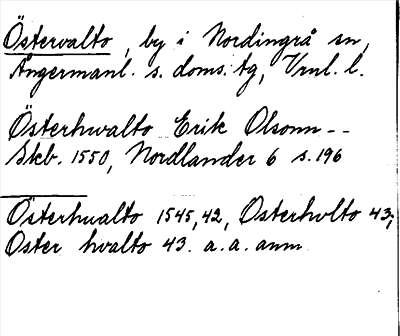 Östervalto, by i Nordingrå sn,
Ångermanl. s. doms. tg, Vrnl. l.
Österhwalto Erik Olsonn --
Skb. 1550, Nordlander 6 s. 196
Österhualto 1545, 42, Osterholto 43,
Öster hvalto 43. a. a. anm